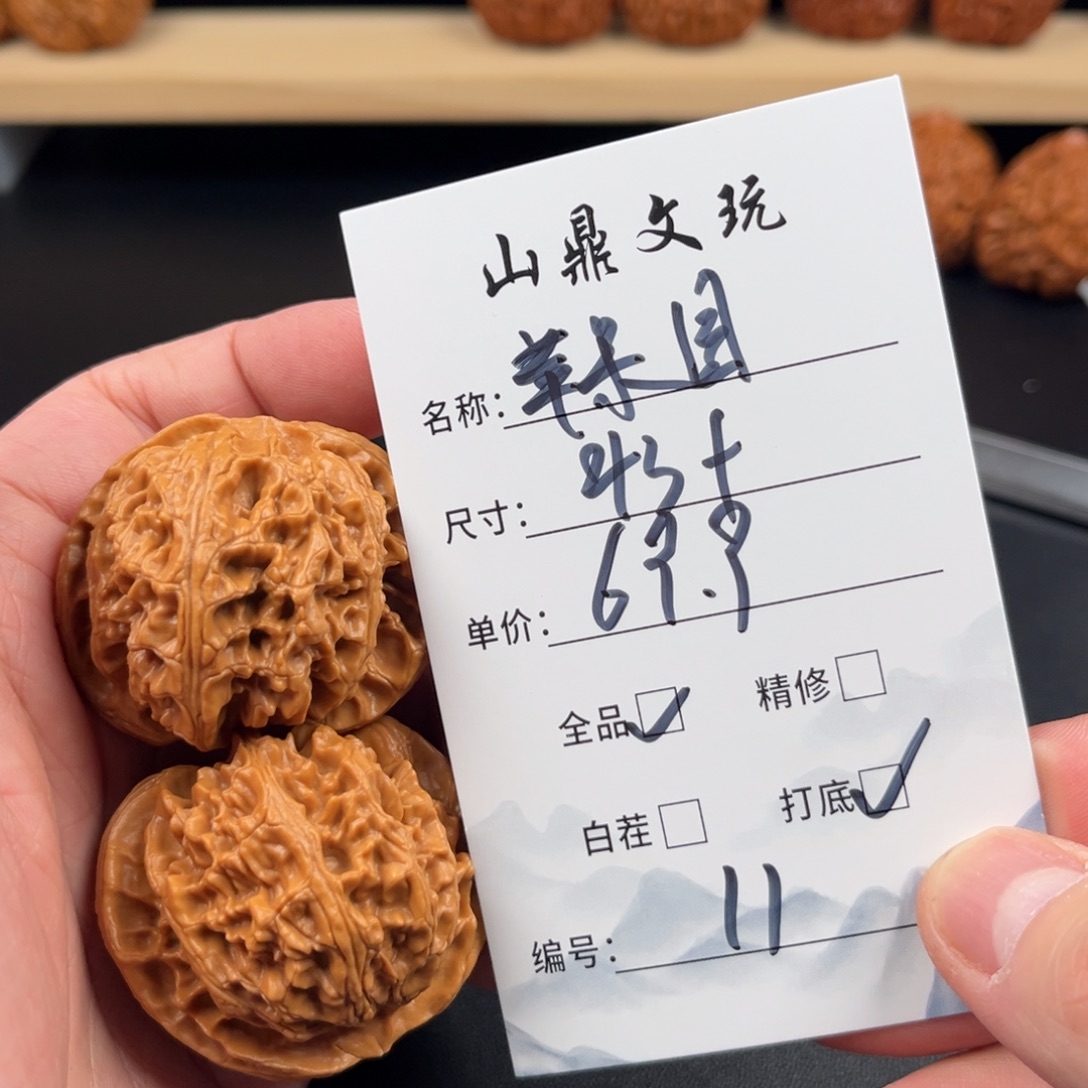 山鼎文玩
名称：苹果园
尺寸：43+
单价：69.9
全品 精修
白茬 打底
编号：11